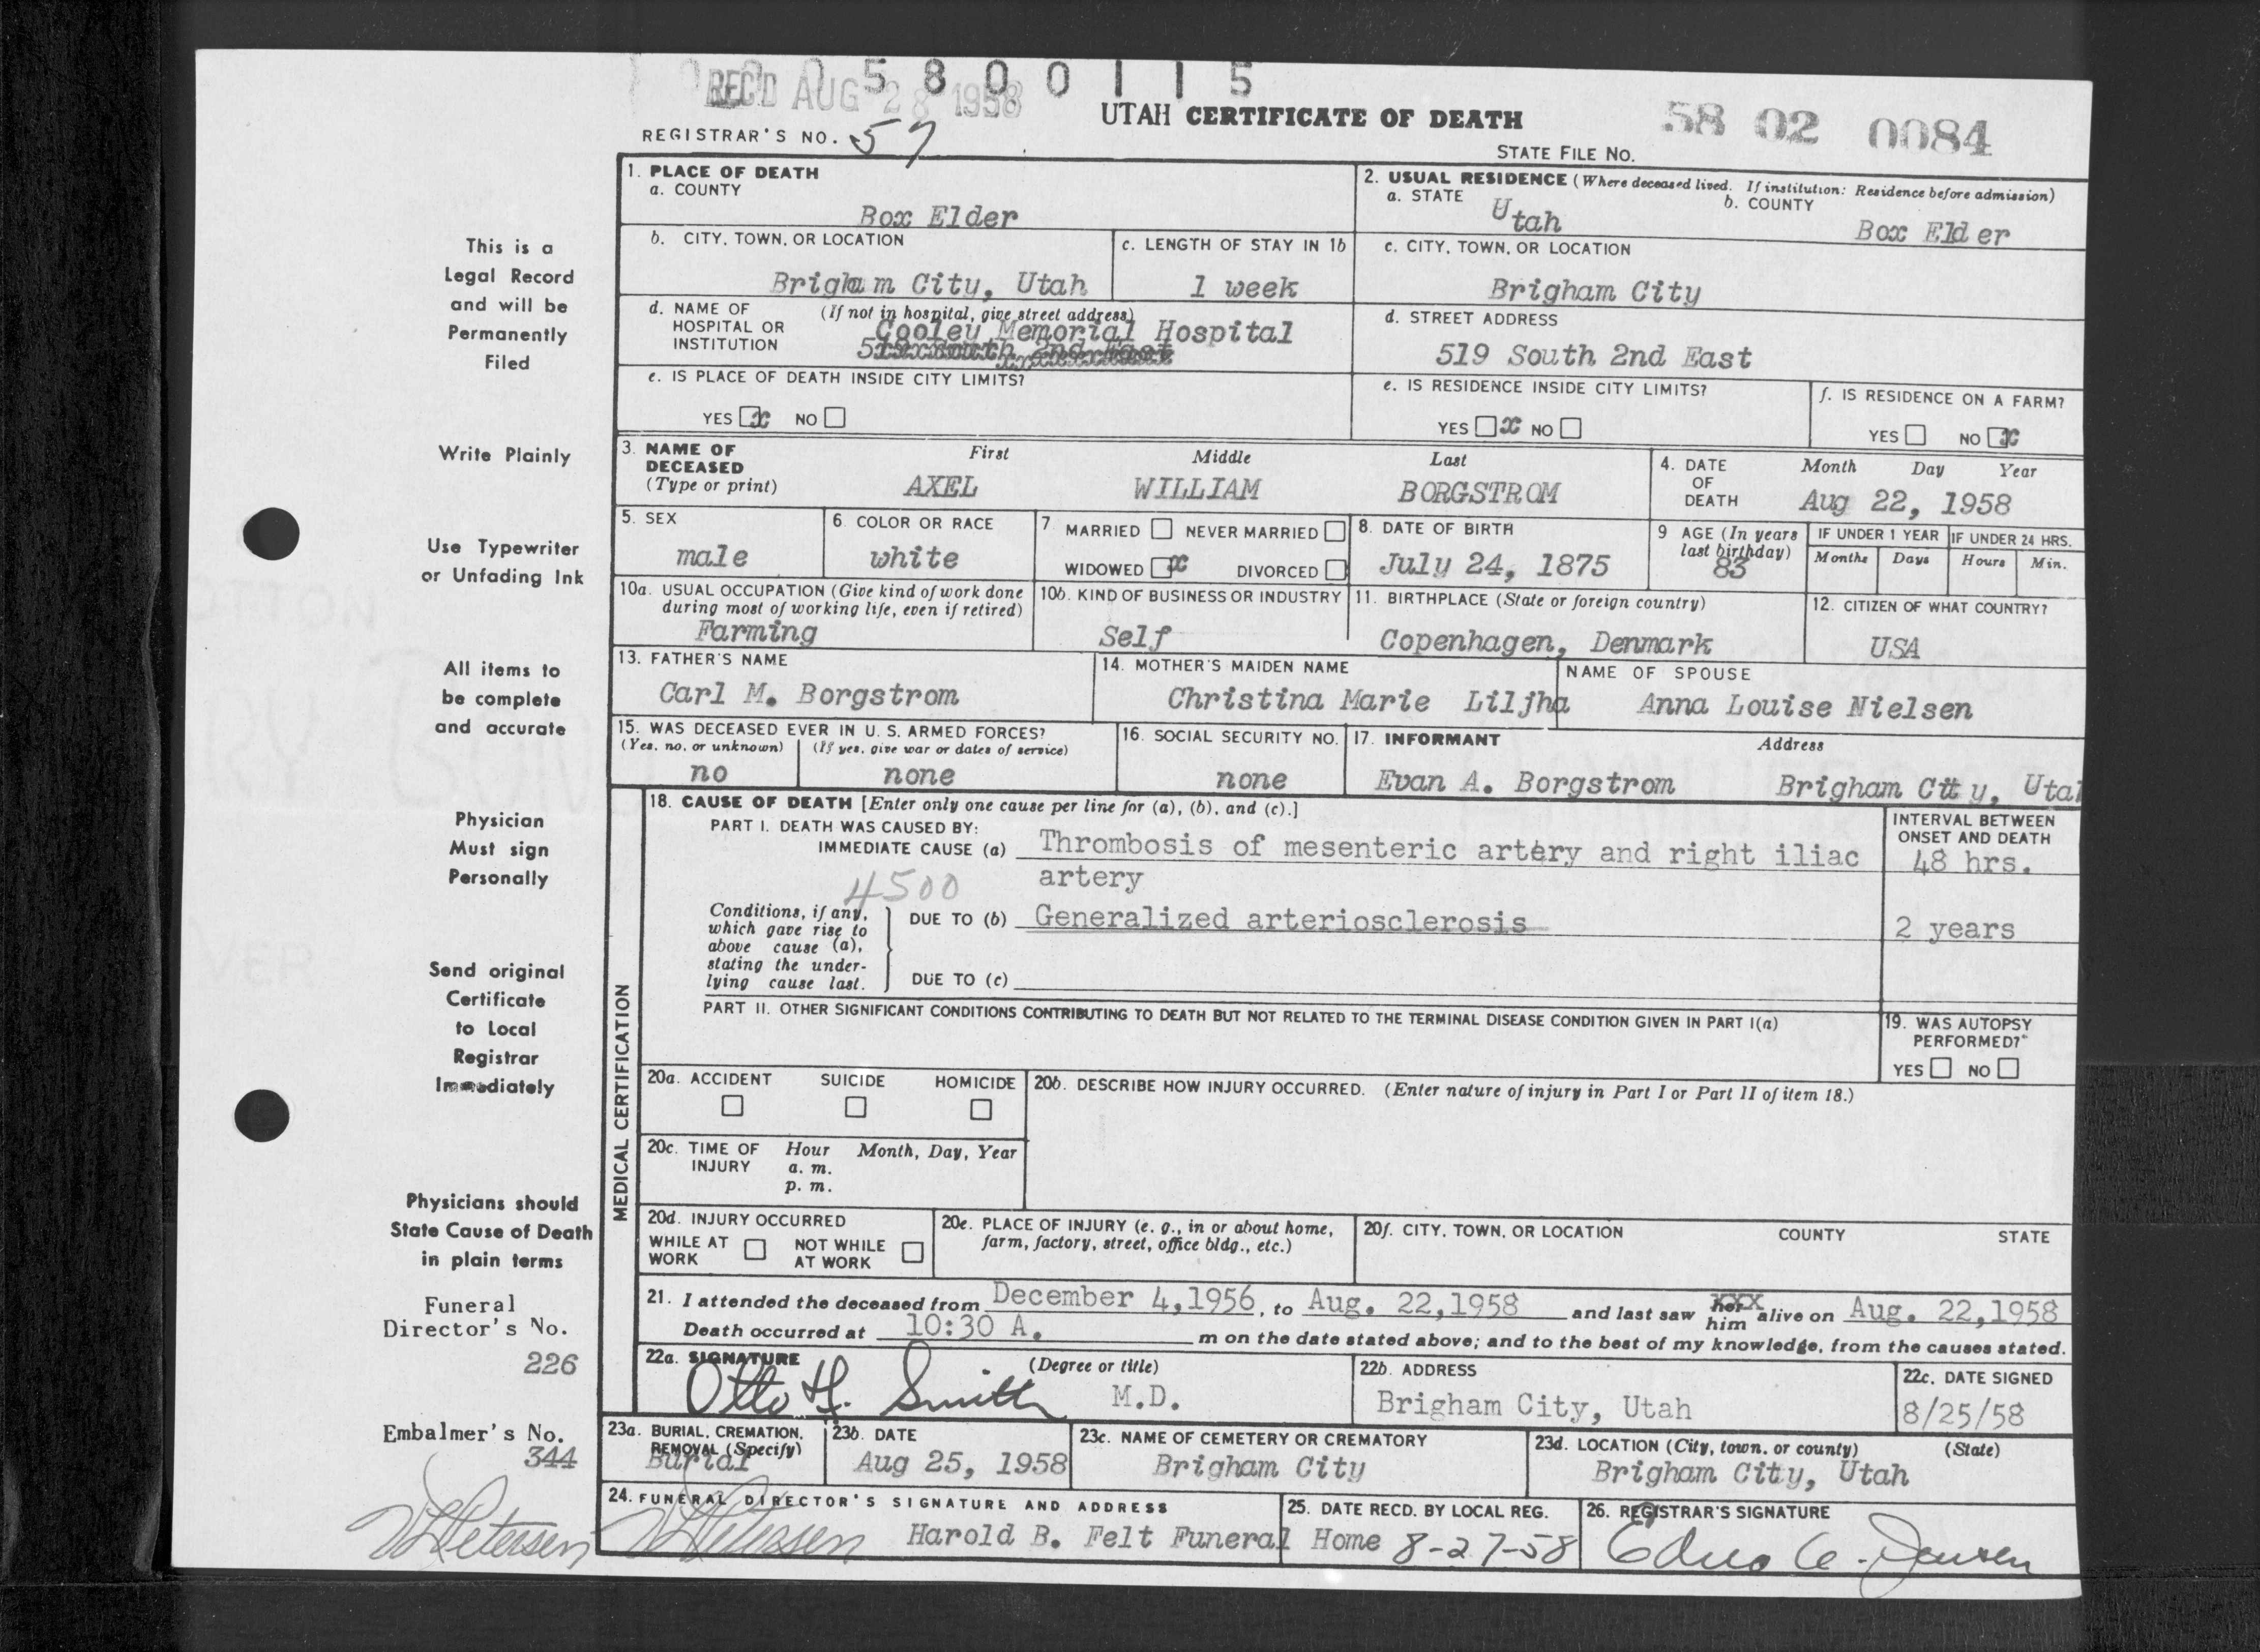 REC'D AUG 28 1958
5 8 0 0 1 1 5
UTAH CERTIFICATE OF DEATH
58 02 0084
REGISTRAR'S NO. 57
STATE FILE NO.
1. PLACE OF DEATH
a. COUNTY
Box Elder
2. USUAL RESIDENCE (Where deceased lived. If institution: Residence before admission)
a. STATE Utah
b. COUNTY Box Elder
b. CITY, TOWN, OR LOCATION
Brigham City, Utah
c. LENGTH OF STAY IN 1b
1 week
c. CITY, TOWN, OR LOCATION
Brigham City
d. NAME OF HOSPITAL OR INSTITUTION
(If not in hospital, give street address)
Cooley Memorial Hospital
519 South 2nd East
d. STREET ADDRESS
519 South 2nd East
e. IS PLACE OF DEATH INSIDE CITY LIMITS?
YES x NO
e. IS RESIDENCE INSIDE CITY LIMITS?
YES x NO
f. IS RESIDENCE ON A FARM?
YES NO x
3. NAME OF DECEASED (Type or print)
First Middle Last
AXEL WILLIAM BORGSTROM
4. DATE OF DEATH
Month Day Year
Aug 22, 1958
5. SEX
male
6. COLOR OR RACE
white
7 MARRIED NEVER MARRIED
WIDOWED x DIVORCED
8. DATE OF BIRTH
July 24, 1875
9 AGE (In years last birthday)
83
IF UNDER 1 YEAR
Months Days
IF UNDER 24 HRS.
Hours Min.
10a. USUAL OCCUPATION (Give kind of work done during most of working life, even if retired)
Farming
10b. KIND OF BUSINESS OR INDUSTRY
Self
11. BIRTHPLACE (State or foreign country)
Copenhagen, Denmark
12. CITIZEN OF WHAT COUNTRY?
USA
13. FATHER'S NAME
Carl M. Borgstrom
14. MOTHER'S MAIDEN NAME
Christina Marie Liljha
NAME OF SPOUSE
Anna Louise Nielsen
15. WAS DECEASED EVER IN U. S. ARMED FORCES?
(Yes, no, or unknown) (If yes, give war or dates of service)
no none
16. SOCIAL SECURITY NO.
none
17. INFORMANT Address
Evan A. Borgstrom Brigham City, Utah
MEDICAL CERTIFICATION
18. CAUSE OF DEATH [Enter only one cause per line for (a), (b), and (c).]
INTERVAL BETWEEN ONSET AND DEATH
PART I. DEATH WAS CAUSED BY:
IMMEDIATE CAUSE (a) Thrombosis of mesenteric artery and right iliac
artery
48 hrs.
4500
Conditions, if any, which gave rise to above cause (a), stating the underlying cause last.
DUE TO (b) Generalized arteriosclerosis
2 years
DUE TO (c)
PART II. OTHER SIGNIFICANT CONDITIONS CONTRIBUTING TO DEATH BUT NOT RELATED TO THE TERMINAL DISEASE CONDITION GIVEN IN PART I(a)
19. WAS AUTOPSY PERFORMED?
YES NO
20a. ACCIDENT SUICIDE HOMICIDE
20b. DESCRIBE HOW INJURY OCCURRED. (Enter nature of injury in Part I or Part II of item 18.)
20c. TIME OF INJURY
Hour Month, Day, Year
a. m.
p. m.
20d. INJURY OCCURRED
WHILE AT WORK NOT WHILE AT WORK
20e. PLACE OF INJURY (e. g., in or about home, farm, factory, street, office bldg., etc.)
20f. CITY, TOWN, OR LOCATION COUNTY STATE
21. I attended the deceased from December 4,1956, to Aug. 22,1958 and last saw her XXX him alive on Aug. 22,1958
Death occurred at 10:30 A. m on the date stated above; and to the best of my knowledge, from the causes stated.
22a. SIGNATURE (Degree or title)
Otto H. Smith M.D.
22b. ADDRESS
Brigham City, Utah
22c. DATE SIGNED
8/25/58
23a. BURIAL, CREMATION, REMOVAL (Specify)
Burial
23b. DATE
Aug 25, 1958
23c. NAME OF CEMETERY OR CREMATORY
Brigham City
23d. LOCATION (City, town, or county) (State)
Brigham City, Utah
24. FUNERAL DIRECTOR'S SIGNATURE AND ADDRESS
Petersen Harold B. Felt Funeral Home
25. DATE RECD. BY LOCAL REG.
8-27-58
26. REGISTRAR'S SIGNATURE
This is a
Legal Record
and will be
Permanently
Filed
Write Plainly
Use Typewriter
or Unfading Ink
All items to
be complete
and accurate
Physician
Must sign
Personally
Send original
Certificate
to Local
Registrar
Immediately
Physicians should
State Cause of Death
in plain terms
Funeral
Director's No.
226
Embalmer's No.
344
Petersen